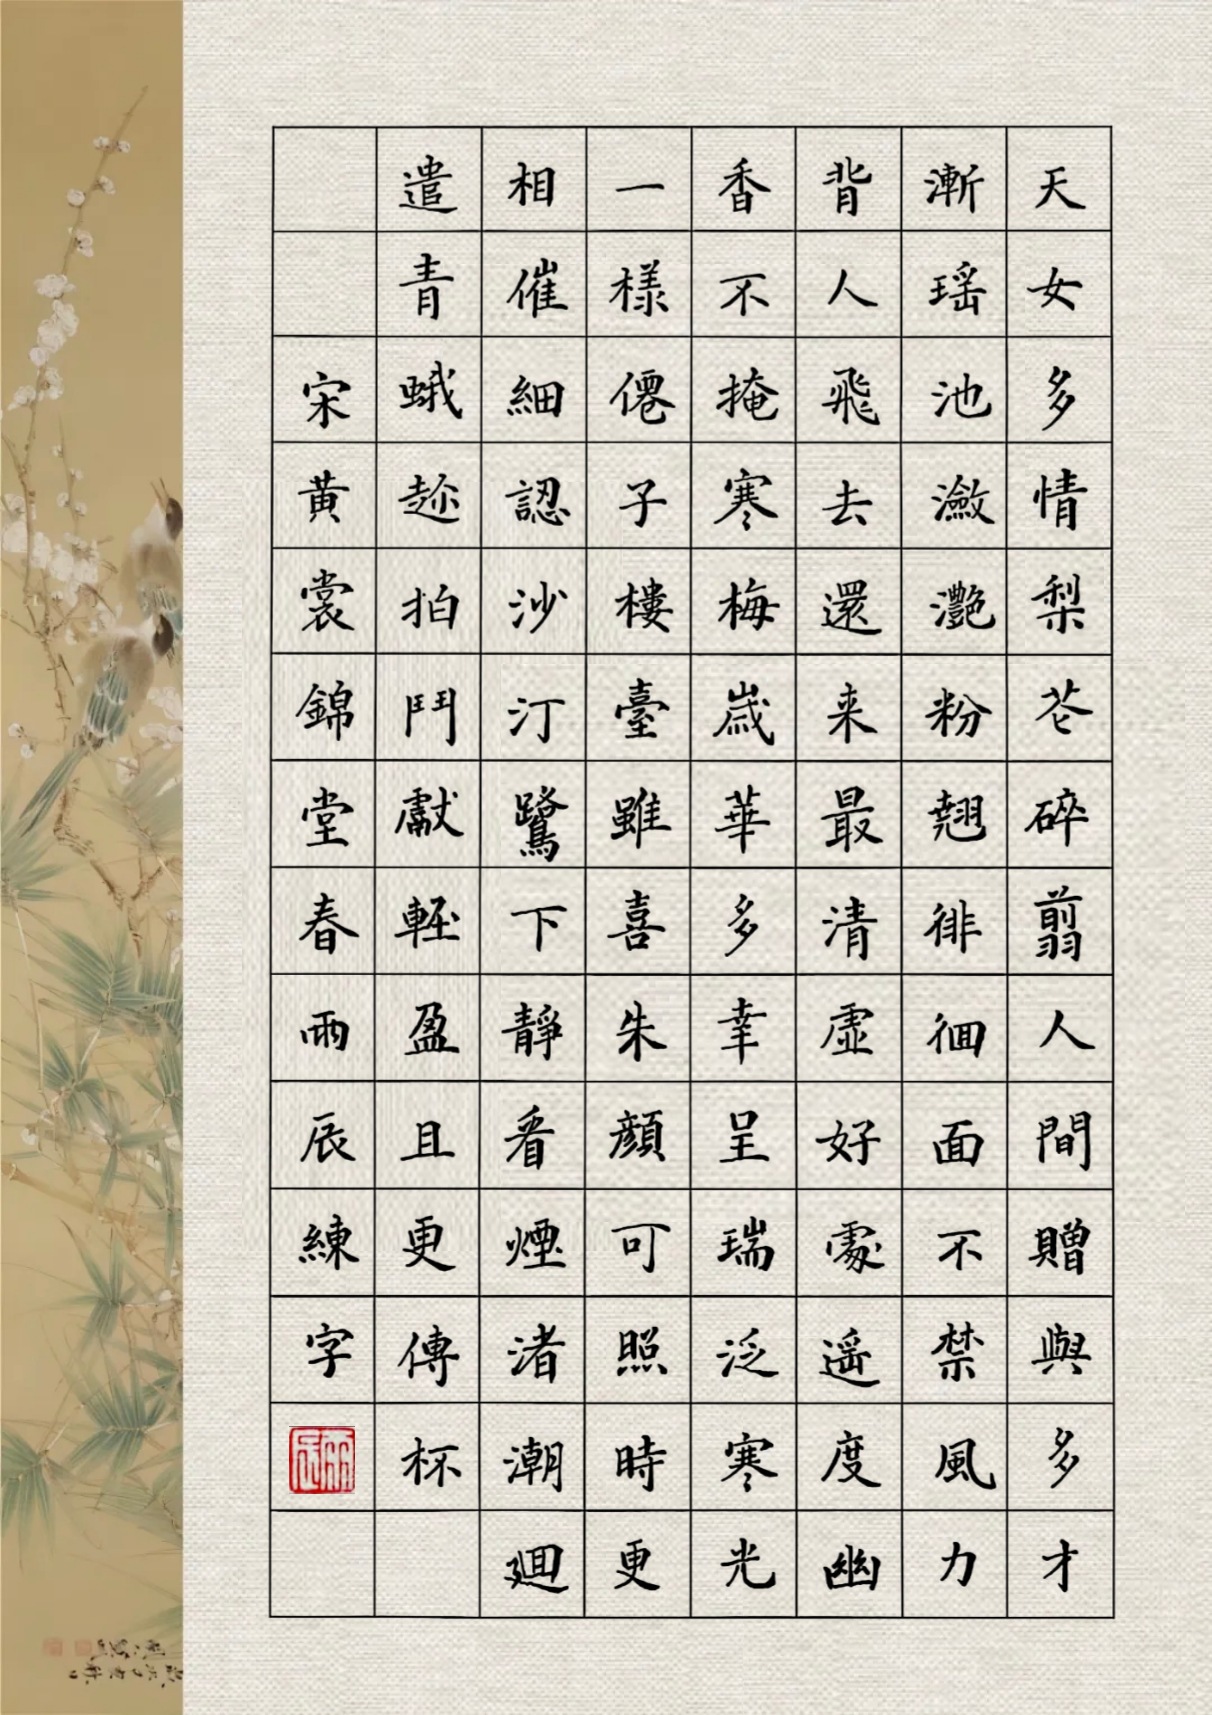 天女多情梨花碎翦人間贈與多才
漸瑶池瀲灔粉翹徘徊面不禁風力
背人飛去還来最清虛好處遥度幽
香不掩寒梅歲華多幸呈瑞泛寒光
一樣僊子樓臺雖喜朱顔可照時更
相催細認沙汀鷺下靜看煙渚潮廻
遣青蛾趂拍鬥獻輕盈且更傳杯
宋黃裳錦堂春雨辰練字
雨辰